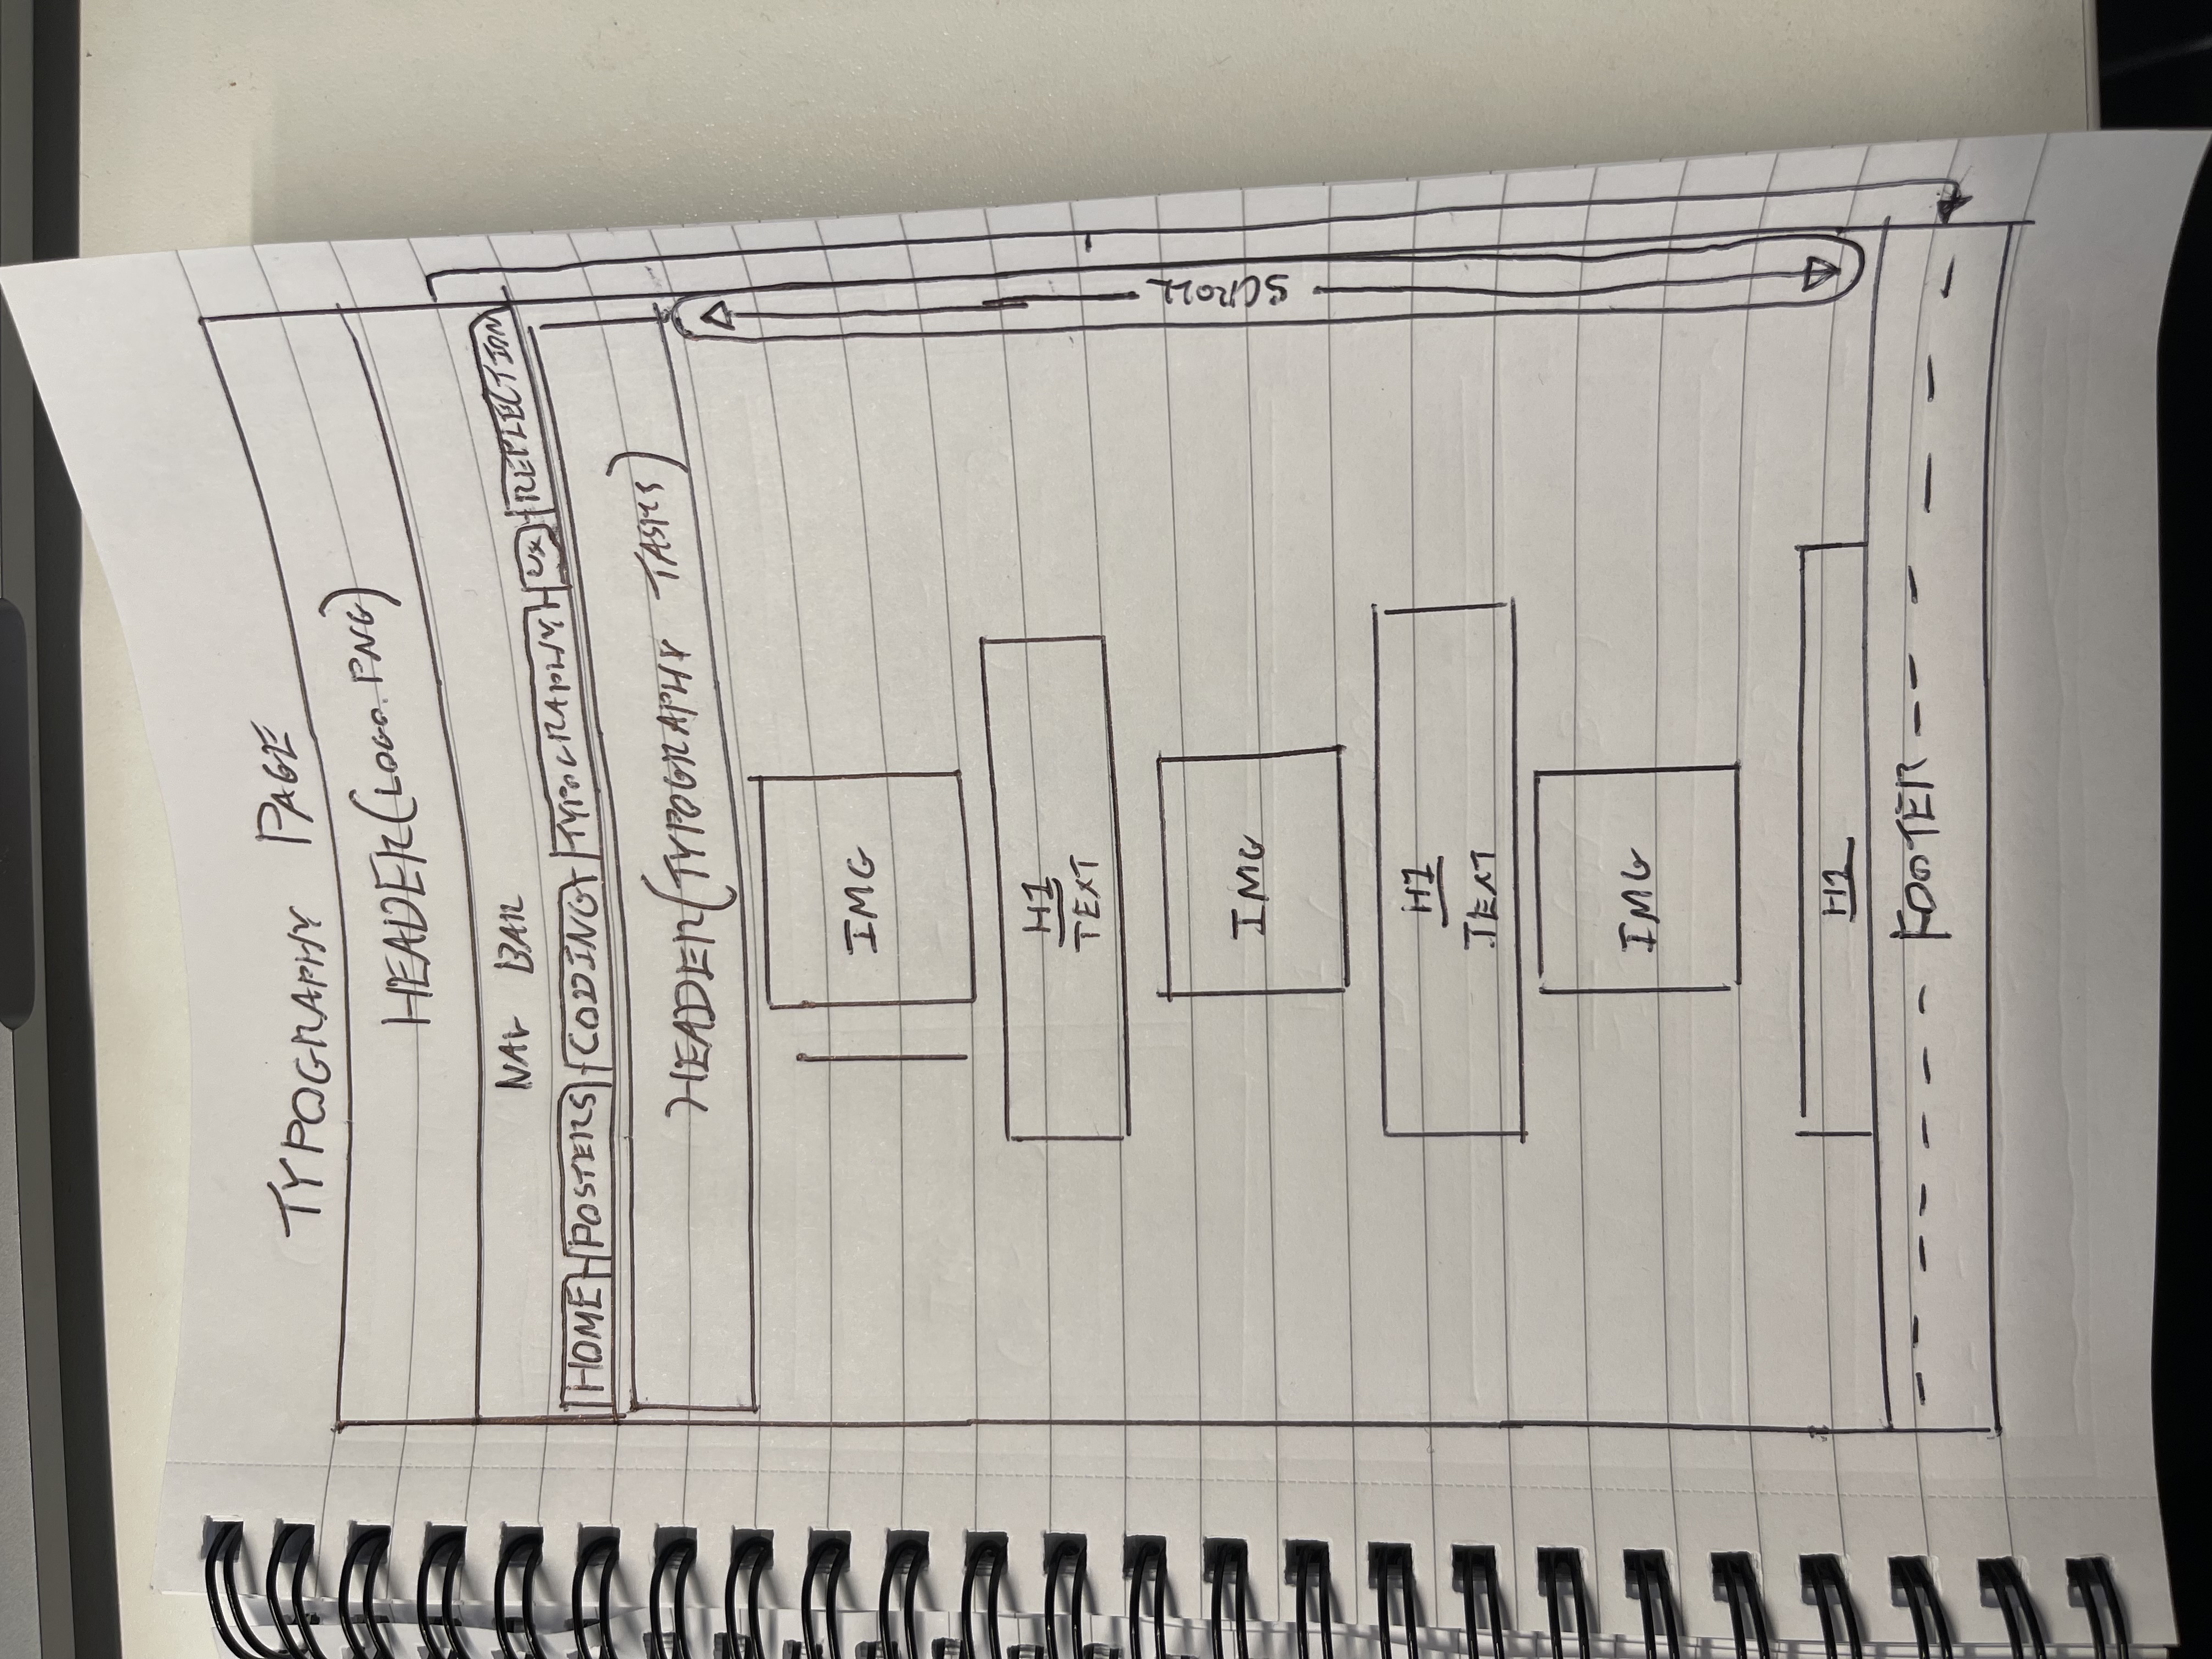 TYPOGRAPHY PAGE
HEADER(LOGO.PNG)
NAV BAR
HOME POSTERS CODING TYPOGRAPHY UX REFLECTION
HEADER(TYPOGRAPHY TASKS)
IMG
H1
TEXT
IMG
H1
TEXT
IMG
H1
SCROLL
FOOTER